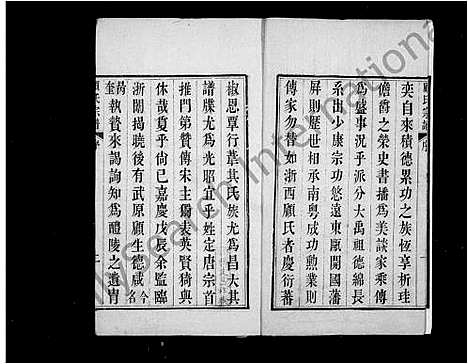 顧氏宗譜 序
奕自來積德累功之族恆享析珪
儋爵之榮史書播為美談家乘傳
為盛事況乎派分大禹祖德綿長
系出少康宗功悠遠東甌開國藩
屏則歷世相承南粵成功勲業則
傳家勿替如浙西顧氏者慶衍蕃
椒思覃行葦其氏族尤為昌大其
譜牒尤為光昭宜乎姓定唐宗首
推門第贊傳宋主獨表英賢猗與
休哉夐乎尚已嘉慶戊辰余監臨
浙闈揭曉後有武原顧生德咸今名
奎執贄來謁詢知為醴陵之遺胄
顧氏宗譜 序 一
ilySearch International